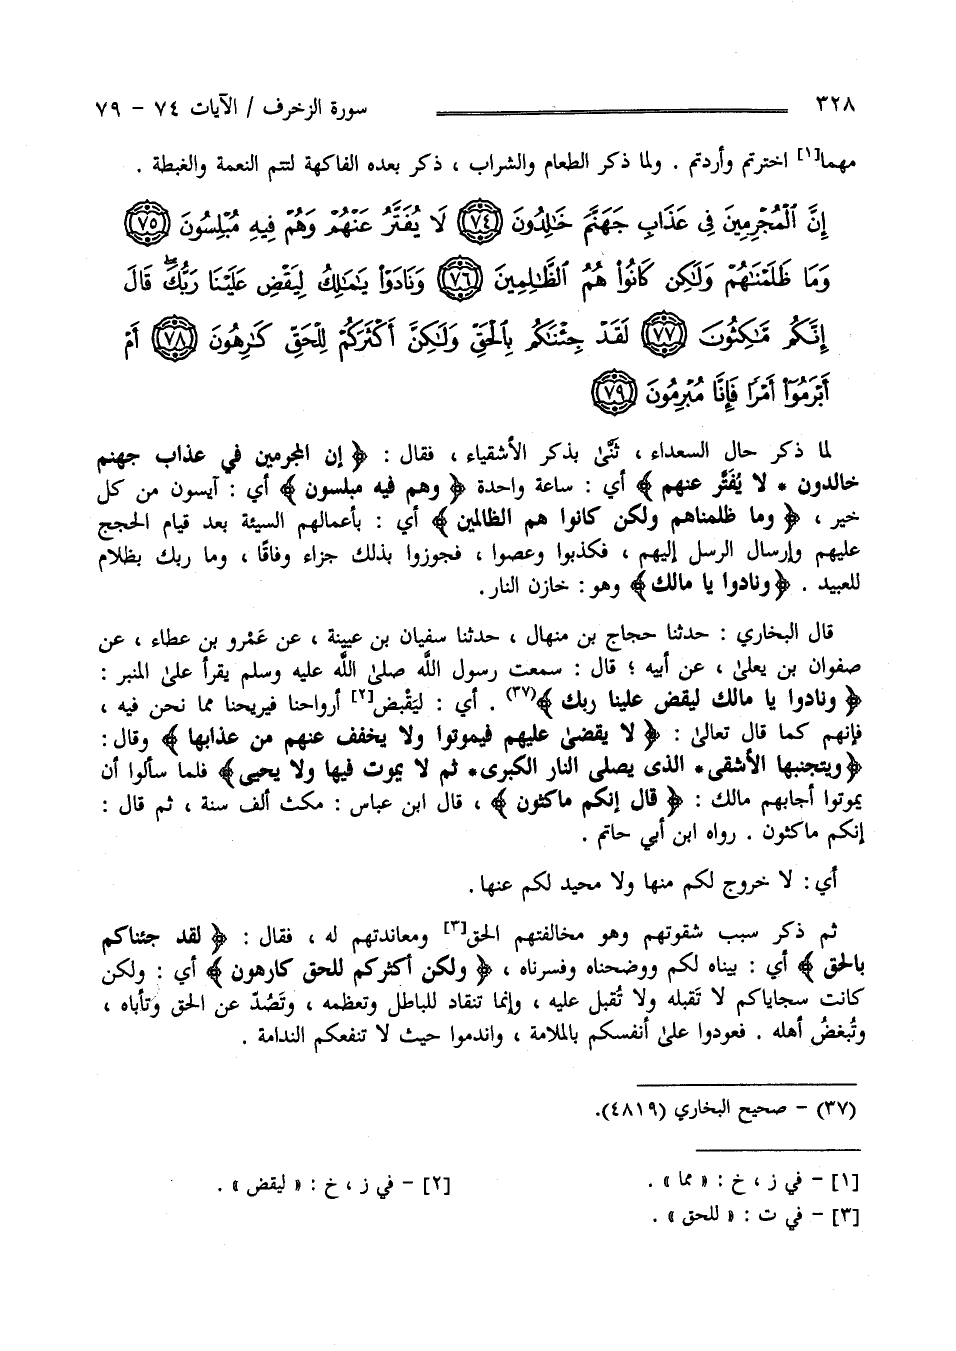 ٣٢٨ سورة الزخرف / الآيات ٧٤ – ٧٩
مهما[١] اخترتم وأردتم . ولما ذكر الطعام والشراب ، ذكر بعده الفاكهة لتتم النعمة والغبطة .
إِنَّ ٱلْمُجْرِمِينَ فِى عَذَابِ جَهَنَّمَ خَٰلِدُونَ ﴿٧٤﴾ لَا يُفَتَّرُ عَنْهُمْ وَهُمْ فِيهِ مُبْلِسُونَ ﴿٧٥﴾
وَمَا ظَلَمْنَٰهُمْ وَلَٰكِن كَانُوا۟ هُمُ ٱلظَّٰلِمِينَ ﴿٧٦﴾ وَنَادَوْا۟ يَٰمَٰلِكُ لِيَقْضِ عَلَيْنَا رَبُّكَ ۖ قَالَ
إِنَّكُم مَّٰكِثُونَ ﴿٧٧﴾ لَقَدْ جِئْنَٰكُم بِٱلْحَقِّ وَلَٰكِنَّ أَكْثَرَكُمْ لِلْحَقِّ كَٰرِهُونَ ﴿٧٨﴾ أَمْ
أَبْرَمُوٓا۟ أَمْرًا فَإِنَّا مُبْرِمُونَ ﴿٧٩﴾
لما ذكر حال السعداء ، ثَنَّىٰ بذكر الأشقياء ، فقال : ﴿ إن المجرمين في عذاب جهنم
خالدون * لا يُفَتَّر عنهم ﴾ أي : ساعة واحدة ﴿ وهم فيه مبلسون ﴾ أي : آيسون من كل
خير ، ﴿ وما ظلمناهم ولكن كانوا هم الظالمين ﴾ أي : بأعمالهم السيئة بعد قيام الحجج
عليهم وإرسال الرسل إليهم ، فكذبوا وعصوا ، فجوزوا بذلك جزاء وفاقًا ، وما ربك بظلام
للعبيد . ﴿ ونادوا يا مالك ﴾ وهو : خازن النار.
قال البخاري : حدثنا حجاج بن منهال ، حدثنا سفيان بن عيينة ، عن عَمْرو بن عطاء ، عن
صفوان بن يعلىٰ ، عن أبيه ؛ قال : سمعت رسول اللَّه صلىٰ اللَّه عليه وسلم يقرأ علىٰ المنبر :
﴿ ونادوا يا مالك ليقض علينا ربك ﴾(٣٧) . أي : ليَقْبِض[٢] أرواحنا فيريحنا مما نحن فيه ،
فإنهم كما قال تعالىٰ : ﴿ لا يقضىٰ عليهم فيموتوا ولا يخفف عنهم من عذابها ﴾ وقال :
﴿ ويتجنبها الأشقى* الذى يصلى النار الكبرى* ثم لا يموت فيها ولا يحيى ﴾ فلما سألوا أن
يموتوا أجابهم مالك : ﴿ قال إنكم ماكثون ﴾ ، قال ابن عباس : مكث ألف سنة ، ثم قال :
إنكم ماكثون . رواه ابن أبي حاتم .
أي : لا خروج لكم منها ولا محيد لكم عنها.
ثم ذكر سبب شقوتهم وهو مخالفتهم الحق[٣] ومعاندتهم له ، فقال : ﴿ لقد جئناكم
بالحق ﴾ أي : بيناه لكم ووضحناه وفسرناه ، ﴿ ولكن أكثركم للحق كارهون ﴾ أي : ولكن
كانت سجاياكم لا تَقبله ولا تُقبل عليه ، وإنما تنقاد للباطل وتعظمه ، وتَصُدّ عن الحق وتأباه ،
وتُبغضُ أهله . فعودوا علىٰ أنفسكم بالملامة ، واندموا حيث لا تنفعكم الندامة .
(٣٧) – صحيح البخاري (٤٨١٩).
[١] – في ز ، خ : « مما » .
[٢] – في ز ، خ : « ليقض » .
[٣] – في ت : « للحق » .